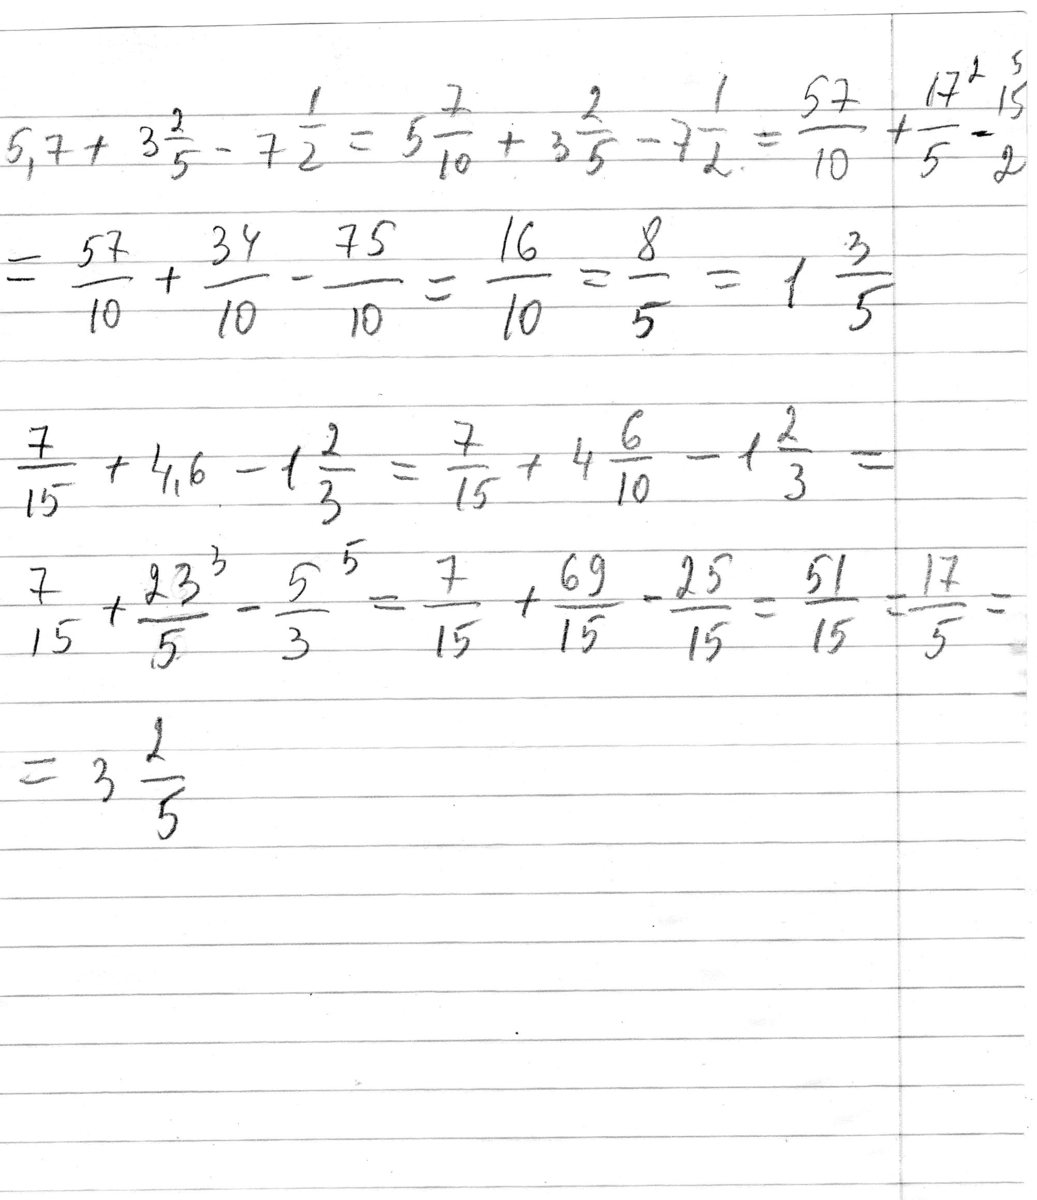 5,7 + 3 2/5 - 7 1/2 = 5 7/10 + 3 2/5 - 7 1/2 = 57/10 + 17/5 ² - 15/2 ⁵
= 57/10 + 34/10 - 75/10 = 16/10 = 8/5 = 1 3/5
7/15 + 4,6 - 1 2/3 = 7/15 + 4 6/10 - 1 2/3 =
7/15 + 23/5 ³ - 5/3 ⁵ = 7/15 + 69/15 - 25/15 = 51/15 = 17/5 =
= 3 2/5